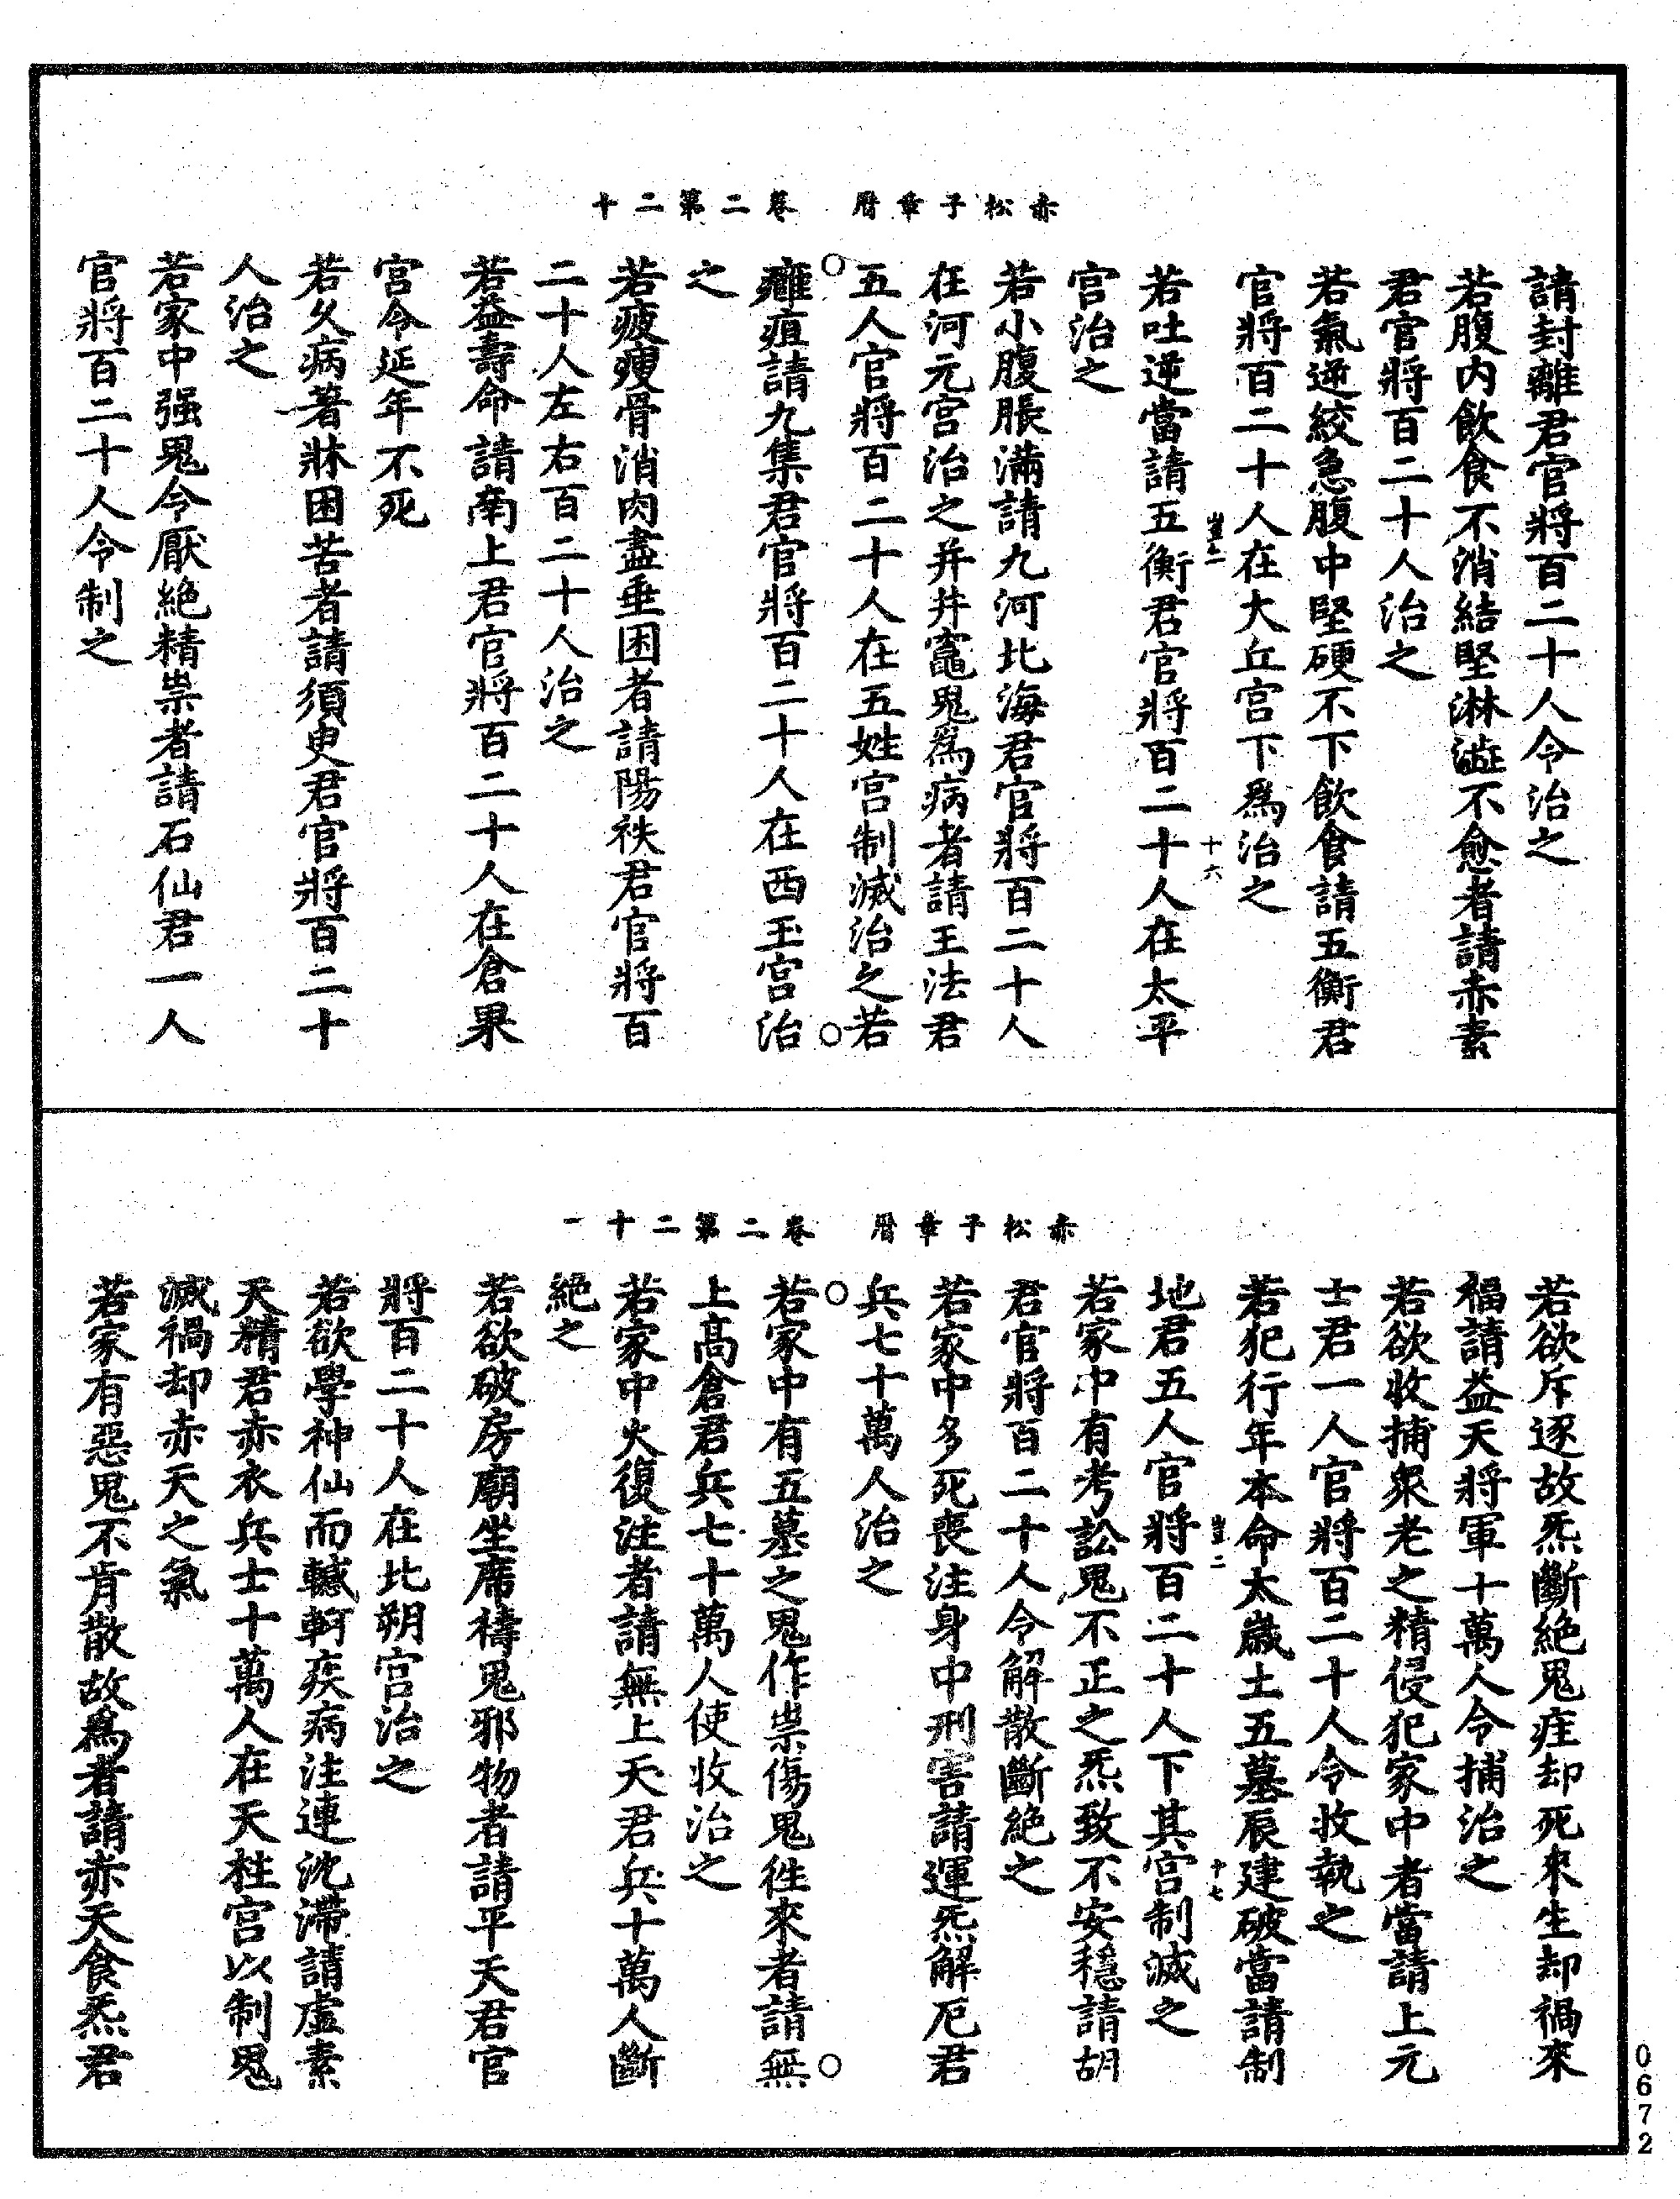 赤松子章曆　卷二第二十
請封離君官將百二十人令治之
若腹内飲食不消結堅淋澁不愈者請赤素
君官將百二十人治之
若氣逆絞急腹中堅硬不下飲食請五衡君
官將百二十人在大丘宮下爲治之
豈二　十六
若吐逆當請五衡君官將百二十人在太平
宮治之
若小腹脹滿請九河北海君官將百二十人
在河元宮治之并井竈鬼爲病者請王法君
五人官將百二十人在五姓宮制滅治之若
癰疽請九集君官將百二十人在西玉宮治
之
若疲瘦骨消肉盡垂困者請陽袟君官將百
二十人左右百二十人治之
若益壽命請南上君官將百二十人在倉果
宮令延年不死
若久病著牀困苦者請須臾君官將百二十
人治之
若家中强鬼令厭絶精祟者請石仙君一人
官將百二十人令制之
赤松子章曆　卷二第二十一
若欲斥逐故炁斷絶鬼疰却死來生却禍來
福請益天將軍十萬人令捕治之
若欲收捕衆老之精侵犯家中者當請上元
士君一人官將百二十人令收執之
若犯行年本命太歲土五墓辰建破當請制
豈二　十七
地君五人官將百二十人下其宮制滅之
若家中有考訟鬼不正之炁致不安穩請胡
君官將百二十人令解散斷絶之
若家中多死喪注身中刑害請運炁解厄君
兵七十萬人治之
若家中有五墓之鬼作祟傷鬼徃來者請無
上高倉君兵七十萬人使收治之
若家中火復注者請無上天君兵十萬人斷
絶之
若欲破房廟坐席禱鬼邪物者請平天君官
將百二十人在北朔宮治之
若欲學神仙而轗軻疾病注連沈滯請虛素
天精君赤衣兵士十萬人在天柱宮以制鬼
滅禍却赤天之氣
若家有惡鬼不肯散故爲者請赤天食炁君
0672